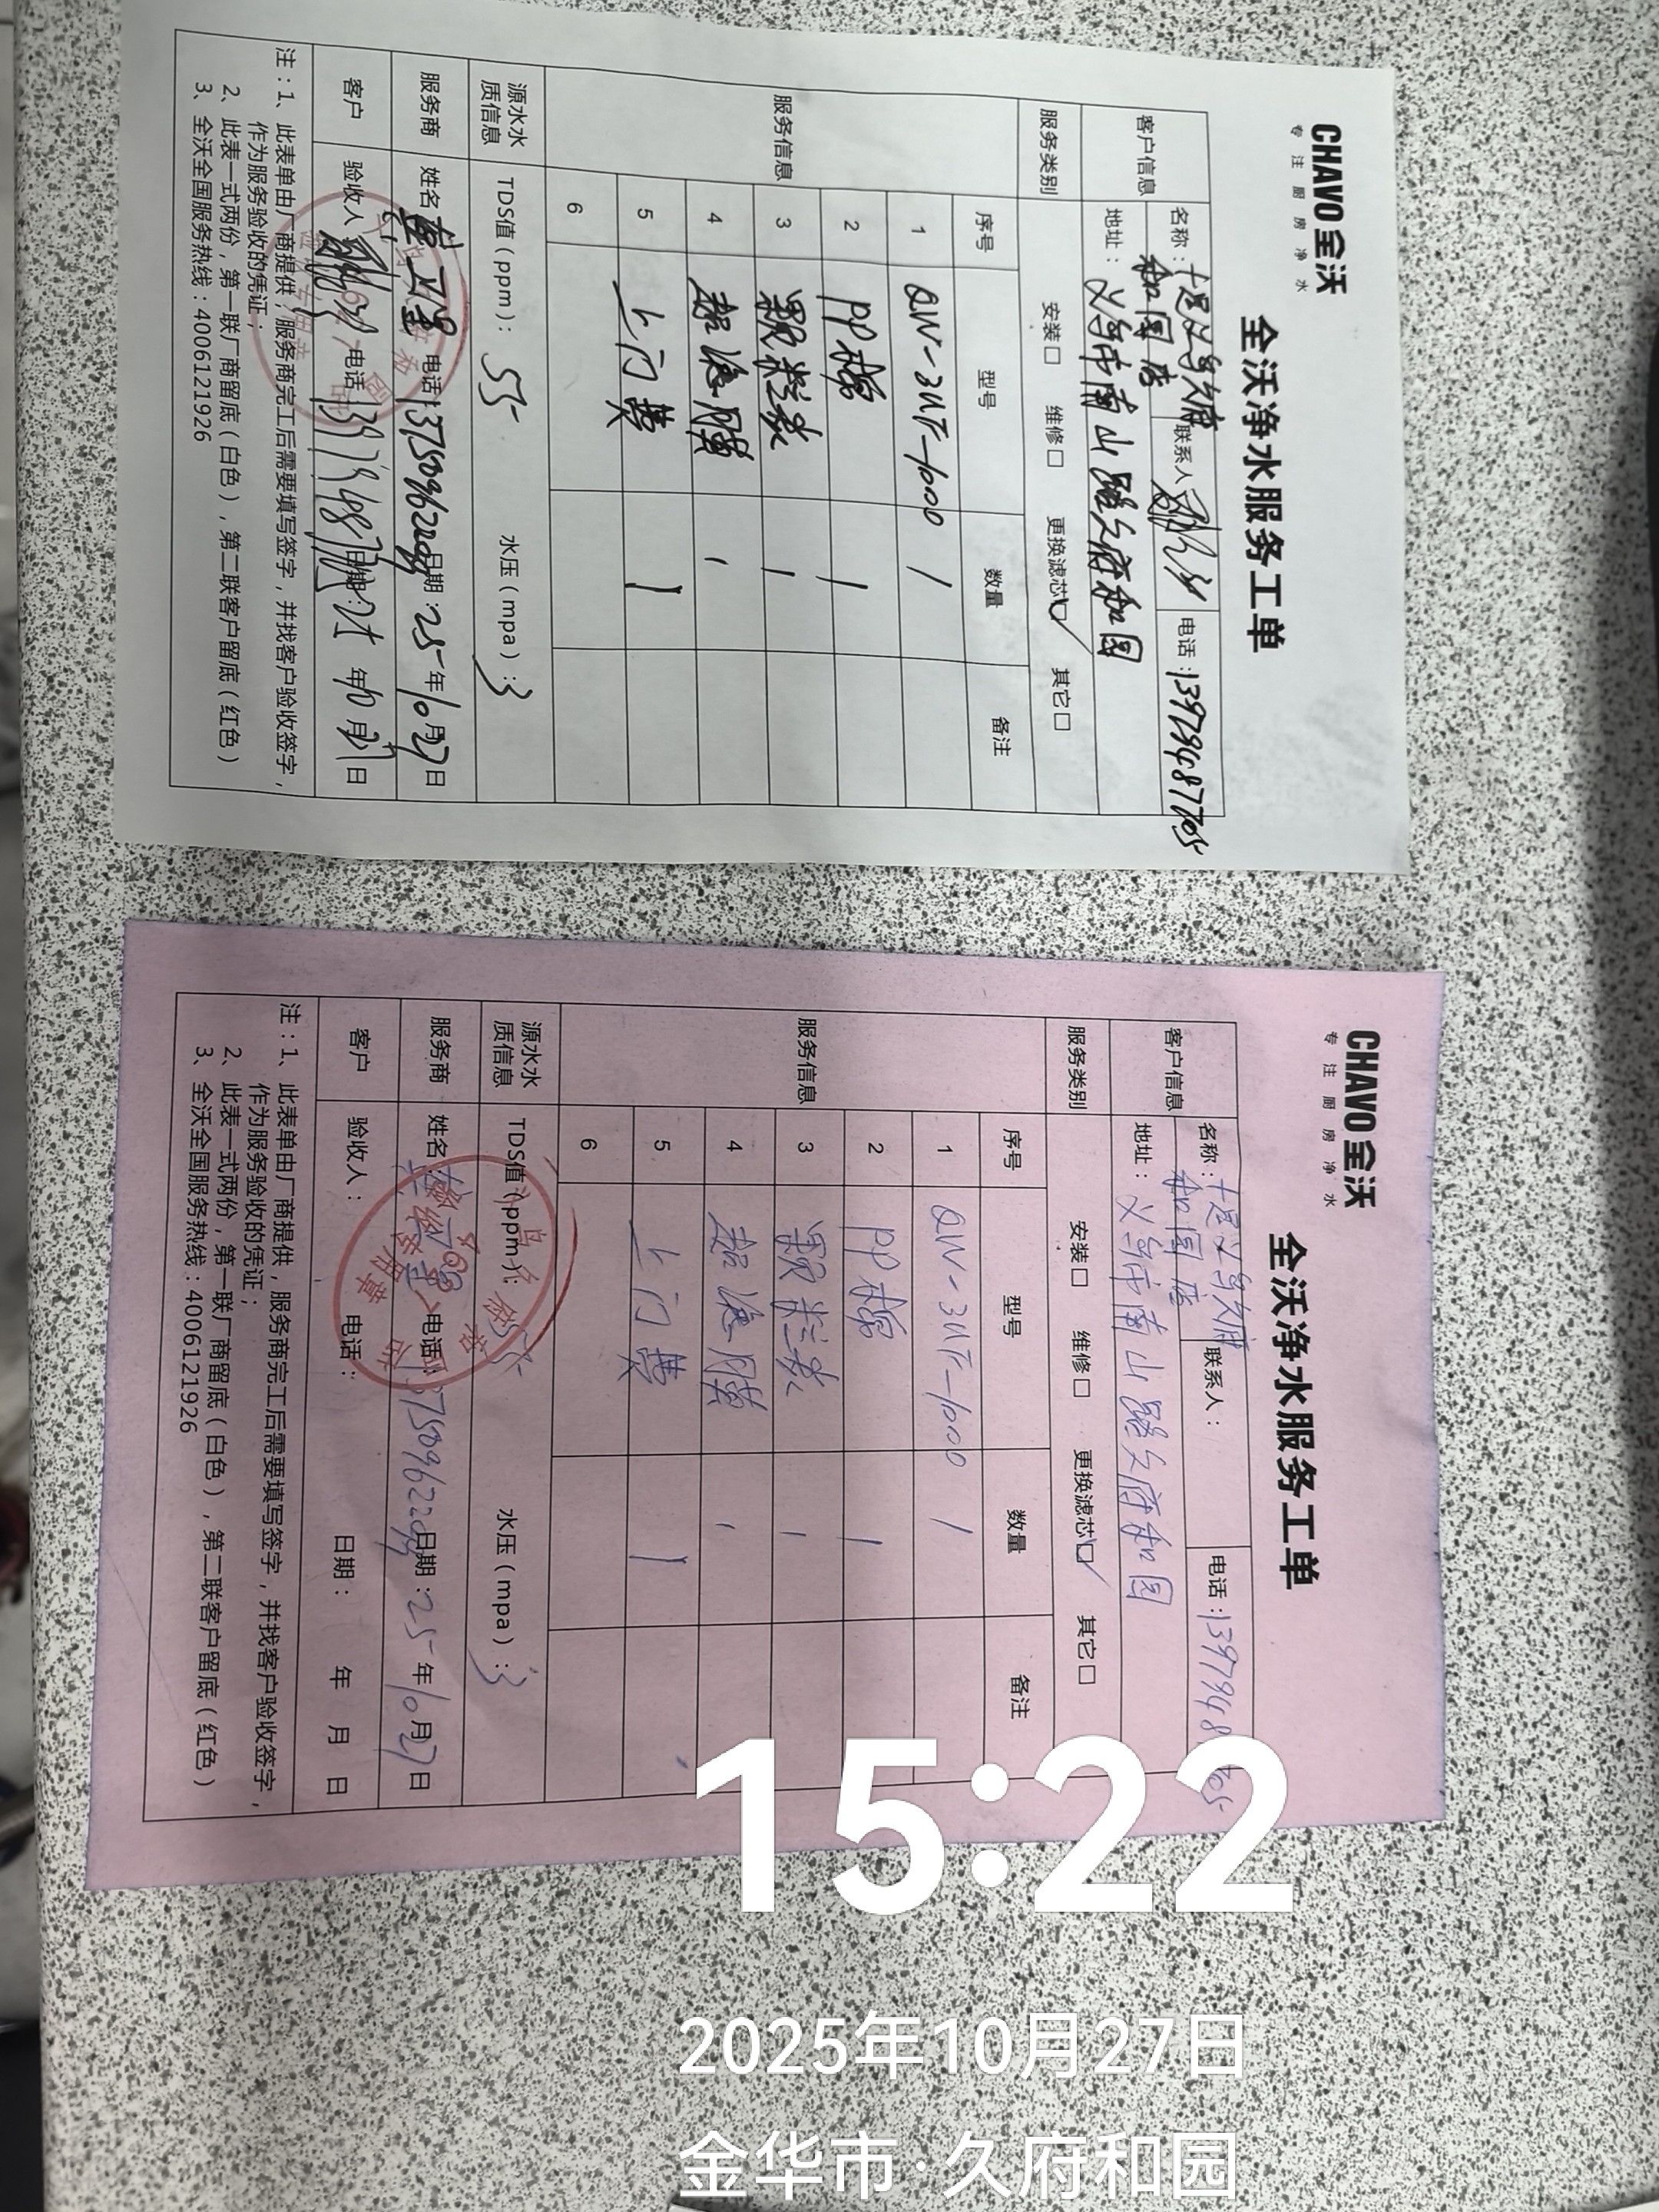 CHAVO 全沃
专注厨房净水
全沃净水服务工单
客户信息
名称：
和园店
联系人
电话：13979487705
地址：义乌市南山路久府和园
服务类别
安装□ 维修□ 更换滤芯☑ 其它□
服务信息
序号 型号 数量 备注
1 QW-3UF-1000 1
2 PP棉 1
3 颗粒炭 1
4 超滤膜 1
5 上门费 1
6
源水水质信息
TDS值（ppm）：55 水压（mpa）：3
服务商 姓名 电话：13750962209 日期：25年10月27日
客户 验收人 电话 日期：25年10月27日
注：1、此表单由厂商提供，服务商完工后需要填写签字，并找客户验收签字，
作为服务验收的凭证；
2、此表一式两份，第一联厂商留底（白色），第二联客户留底（红色）
3、全沃全国服务热线：4006121926
CHAVO 全沃
专注厨房净水
全沃净水服务工单
客户信息
名称：
和园店
联系人：
电话：
地址：义乌市南山路久府和园
服务类别
安装□ 维修□ 更换滤芯☑ 其它□
服务信息
序号 型号 数量 备注
1 QW-3UF-1000 1
2 PP棉 1
3 颗粒炭 1
4 超滤膜 1
5 上门费 1
6
源水水质信息
TDS值（ppm）： 水压（mpa）：3
服务商 姓名 电话：13750962209 日期：25年10月27日
客户 验收人： 电话： 日期： 年 月 日
注：1、此表单由厂商提供，服务商完工后需要填写签字，并找客户验收签字，
作为服务验收的凭证；
2、此表一式两份，第一联厂商留底（白色），第二联客户留底（红色）
3、全沃全国服务热线：4006121926
15:22
2025年10月27日
金华市·久府和园